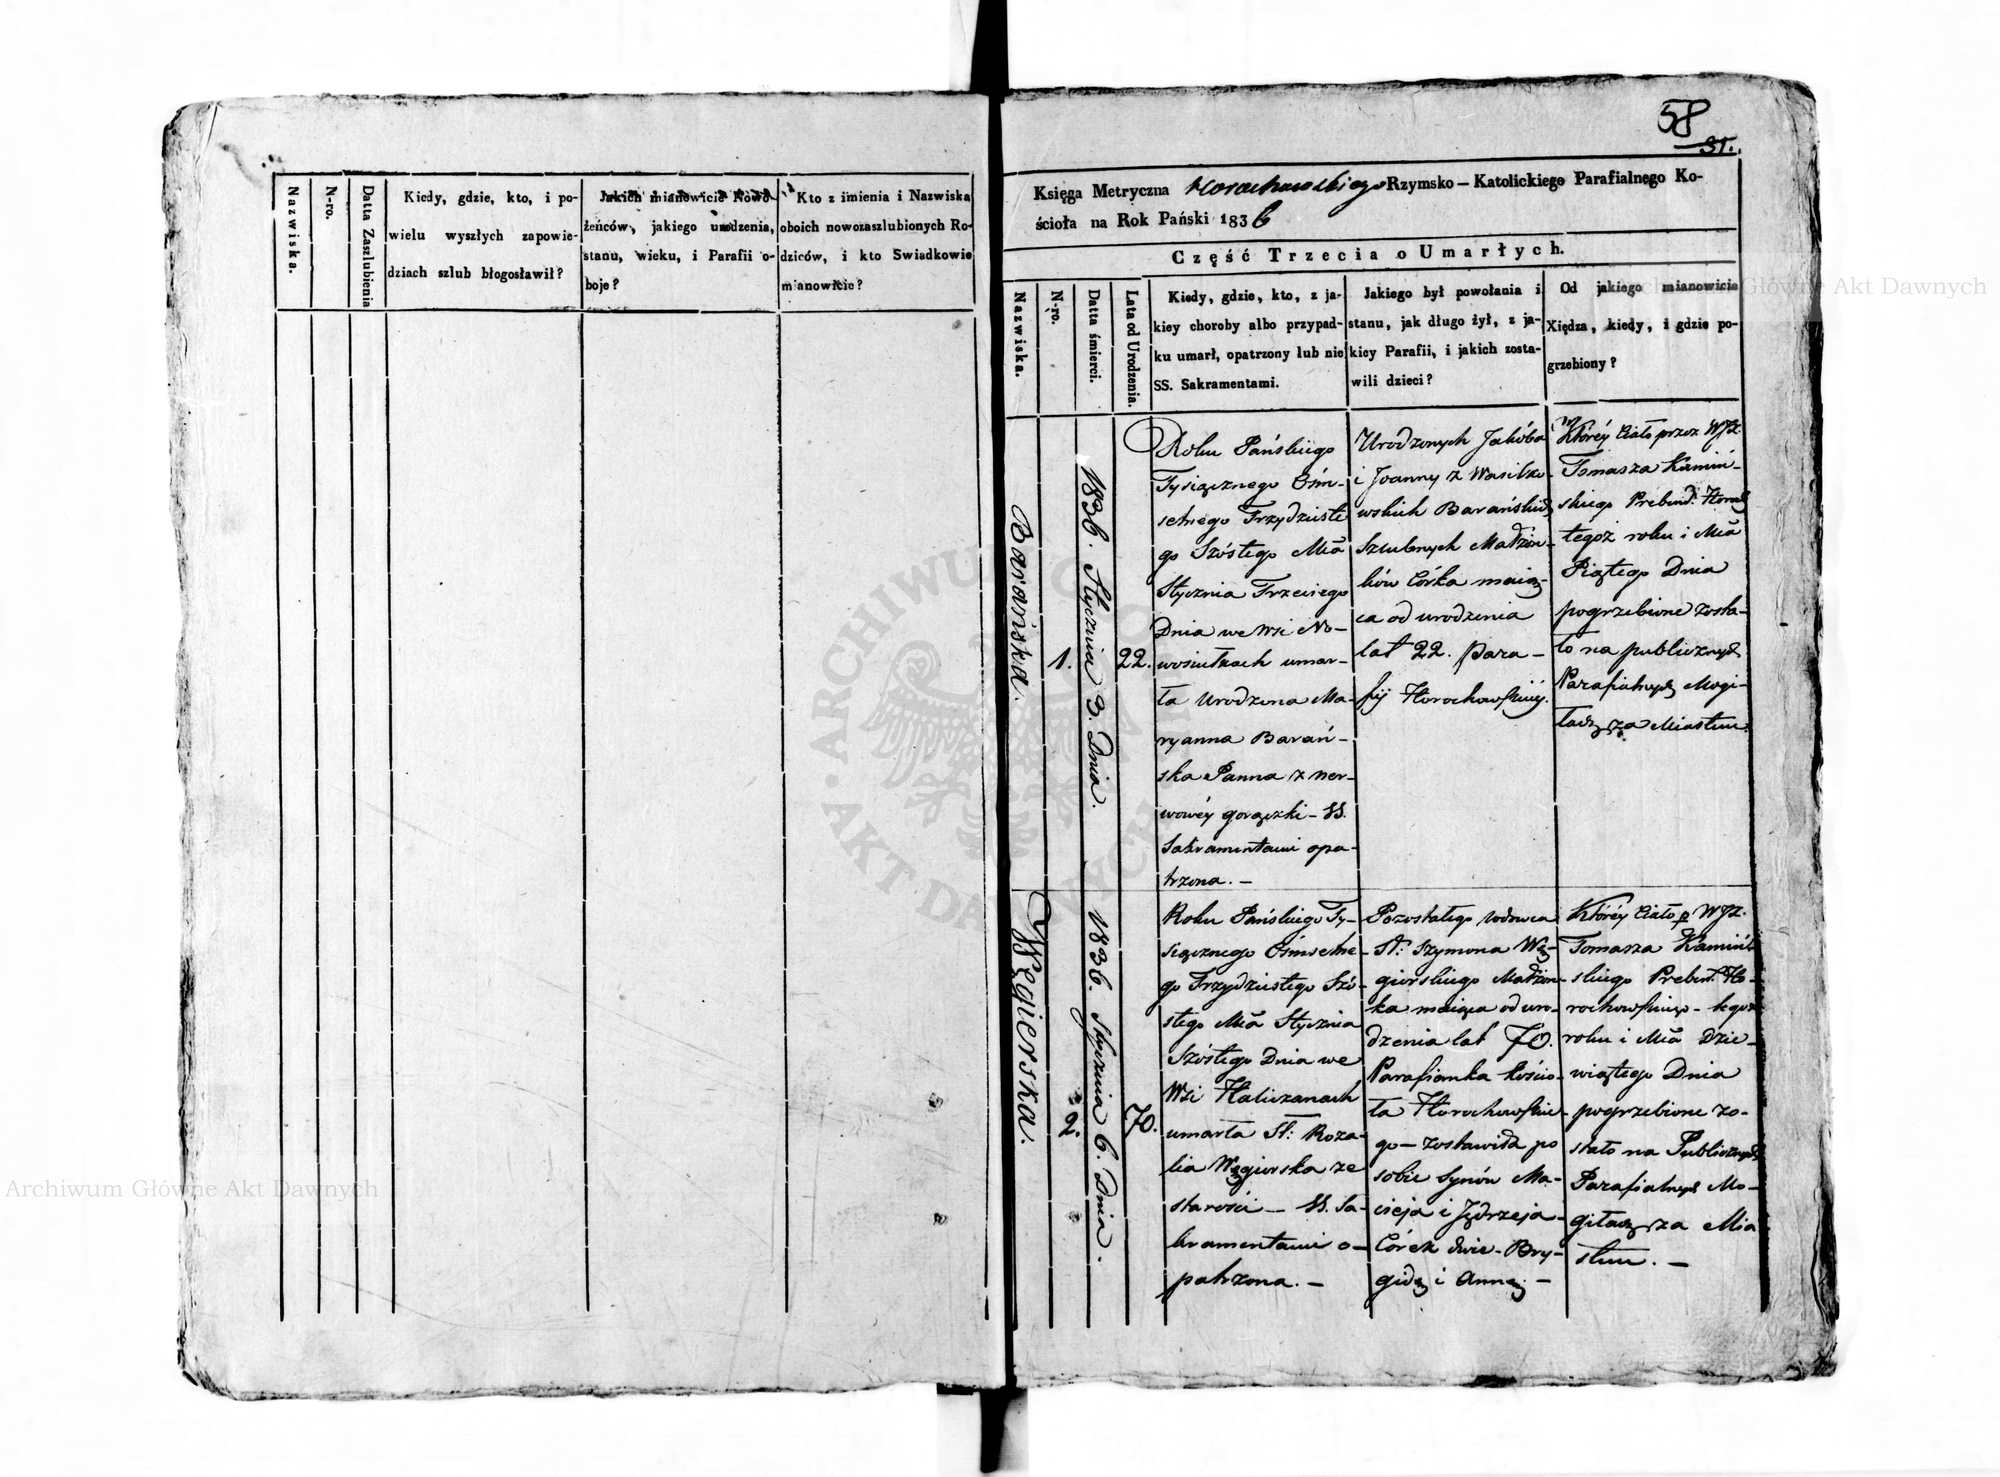 Nazwiska.
N-ro.
Datta Zaszlubienia
Kiedy, gdzie, kto, i po-
wielu wyszłych zapowie-
dziach szlub błogosławił?
Jakich mianowicie Nowo-
żeńców, jakiego urodzenia,
stanu, wieku, i Parafii o-
boje?
Kto z imienia i Nazwiska
oboich nowozaszlubionych Ro-
dziców, i kto Swiadkowie
mianowicie?
58
31.
Księga Metryczna Horochowskiego Rzymsko-Katolickiego Parafialnego Ko-
ścioła na Rok Pański 1836
Część Trzecia o Umarłych.
Nazwiska.
N-ro.
Datta śmierci.
Lata od Urodzenia.
Kiedy, gdzie, kto, z ja-
kiey choroby albo przypad-
ku umarł, opatrzony lub nie
SS. Sakramentami.
Jakiego był powołania i
stanu, jak długo żył, z ja-
kiey Parafii, i jakich zosta-
wili dzieci?
Od jakiego mianowicie
Xiędza, kiedy, i gdzie po-
grzebiony?
Barańska.
1.
1836. Stycznia 3. Dnia.
22.
Roku Pańskiego
Tysiącznego Ośm-
setnego Trzydzieste
go Szóstego Mca
Stycznia Trzeciego
Dnia we Wsi No-
wosiułkach umar-
ła Urodzona Ma-
ryanna Barań-
ska Panna z ner-
wowéy gorączki - SS.
Sakramentami opa-
trzona. -
Urodzonych Jakóba
i Joanny z Wasilko-
wskich Barańskich
Szlubnych Małżon-
ków Córka maią-
ca od urodzenia
lat 22. Para-
fij Horochowskiéy.
Któréy Ciało przez WJX.
Tomasza Kamiń-
skiego Prebend. Horoch
tegoż roku i Mca
Piątego Dnia
pogrzebione zosta-
ło na publicznych
Parafialnych Mogi-
łach za Miastem.
Węgierska.
2.
1836. Stycznia 6. Dnia.
70.
Roku Pańskiego Ty-
siącznego Ośmsetne-
go Trzydziestego Szó-
stego Mca Stycznia
Szóstego Dnia we
Wsi Haliczanach
umarła Sł: Roza-
lia Węgierska ze
starości - SS. Sa-
kramentami o-
patrzona. -
Pozostałego wdowca
Sł: Szymona Wę-
gierskiego Małżon-
ka maiąca od uro-
dzenia lat 70.
Parafianka Kościo-
ła Horochowskie-
go - zostawiła po
sobie Synów Ma-
cieja i Jędrzeja -
Córek dwie - Bry-
gidę i Annę. -
Któréy Ciało p WJX.
Tomasza Kamiń-
skiego Prebend. Ho-
rochowskiego - tegoż
roku i Mca Dzie-
wiątego Dnia
pogrzebione zo-
stało na Publicznych
Parafialnych Mo-
giłach za Mia
stem. -
Archiwum Główne Akt Dawnych
Archiwum Główne Akt Dawnych
ARCHIWUM GŁÓWNE AKT DAWNYCH